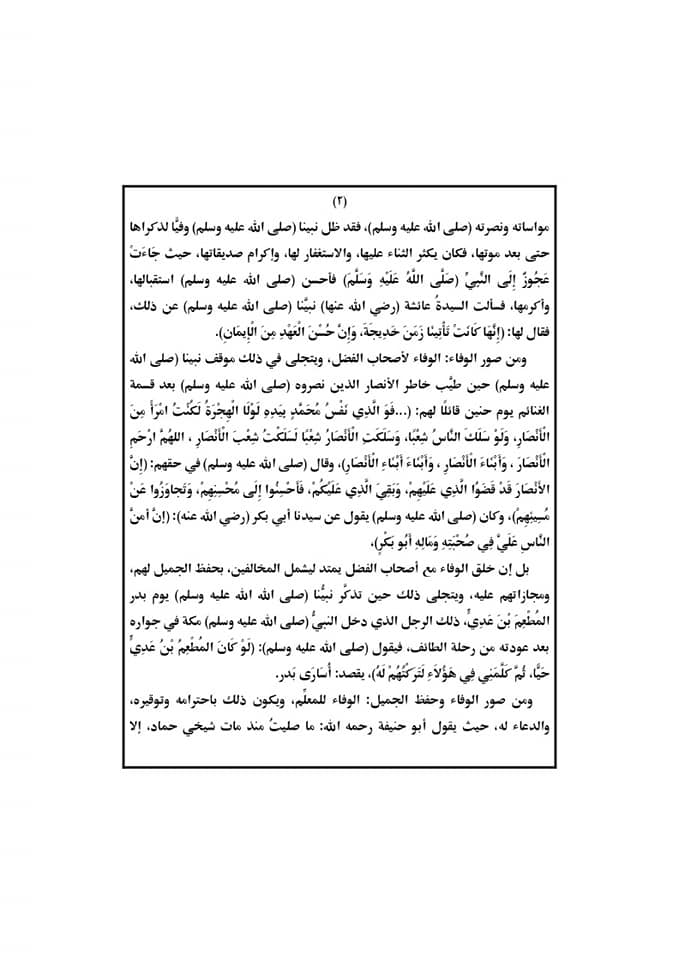 (٢)
مواساته ونصرته (صلى الله عليه وسلم)، فقد ظل نبينا (صلى الله عليه وسلم) وفيًّا لذكراها
حتى بعد موتها، فكان يكثر الثناء عليها، والاستغفار لها، وإكرام صديقاتها، حيث جَاءَتْ
عَجُوزٌ إِلَى النَّبِيِّ (صَلَّى اللَّهُ عَلَيْهِ وَسَلَّمَ) فأحسن (صلى الله عليه وسلم) استقبالها،
وأكرمها، فسألت السيدةُ عائشة (رضي الله عنها) نبيَّنا (صلى الله عليه وسلم) عن ذلك،
فقال لها: (إِنَّهَا كَانَتْ تَأْتِينَا زَمَنَ خَدِيجَةَ، وَإِنَّ حُسْنَ الْعَهْدِ مِنَ الْإِيمَانِ).
ومن صور الوفاء: الوفاء لأصحاب الفضل، ويتجلى في ذلك موقف نبينا (صلى الله
عليه وسلم) حين طيَّب خاطر الأنصار الذين نصروه (صلى الله عليه وسلم) بعد قسمة
الغنائم يوم حنين قائلًا لهم: (...فَوَ الَّذِي نَفْسُ مُحَمَّدٍ بِيَدِهِ لَوْلَا الْهِجْرَةُ لَكُنْتُ امْرَأً مِنَ
الْأَنْصَارِ، وَلَوْ سَلَكَ النَّاسُ شِعْبًا، وَسَلَكَتِ الْأَنْصَارُ شِعْبًا لَسَلَكْتُ شِعْبَ الْأَنْصَارِ ، اللهُمَّ ارْحَمِ
الْأَنْصَارَ ، وَأَبْنَاءَ الْأَنْصَارِ ، وَأَبْنَاءَ أَبْنَاءِ الْأَنْصَارِ)، وقال (صلى الله عليه وسلم) في حقهم: (إِنَّ
الأَنْصَارَ قَدْ قَضَوُا الَّذِي عَلَيْهِمْ، وَبَقِيَ الَّذِي عَلَيْكُمْ، فَأَحْسِنُوا إِلَى مُحْسِنِهِمْ، وَتَجاوَزُوا عَنْ
مُسِيئِهِمْ)، وكان (صلى الله عليه وسلم) يقول عن سيدنا أبي بكر (رضي الله عنه): (إنَّ أمنَّ
النَّاسِ عَلَيَّ فِي صُحْبَتِهِ وَمَالِهِ أَبُو بَكْرٍ)،
بل إن خلق الوفاء مع أصحاب الفضل يمتد ليشمل المخالفين، بحفظ الجميل لهم،
ومجازاتهم عليه، ويتجلى ذلك حين تذكَّر نبيُّنا (صلى الله الله عليه وسلم) يوم بدر
المُطْعِمَ بْنَ عَدِيٍّ، ذلك الرجل الذي دخل النبيُّ (صلى الله عليه وسلم) مكة في جواره
بعد عودته من رحلة الطائف، فيقول (صلى الله عليه وسلم): (لَوْ كَانَ المُطْعِمُ بْنُ عَدِيٍّ
حَيًّا، ثُمَّ كَلَّمَنِي فِي هَؤُلاَءِ لَتَرَكْتُهُمْ لَهُ)، يقصد: أُسَارَى بَدر.
ومن صور الوفاء وحفظ الجميل: الوفاء للمعلِّم، ويكون ذلك باحترامه وتوقيره،
والدعاء له، حيث يقول أبو حنيفة رحمه الله: ما صليتُ منذ مات شيخي حماد، إلا